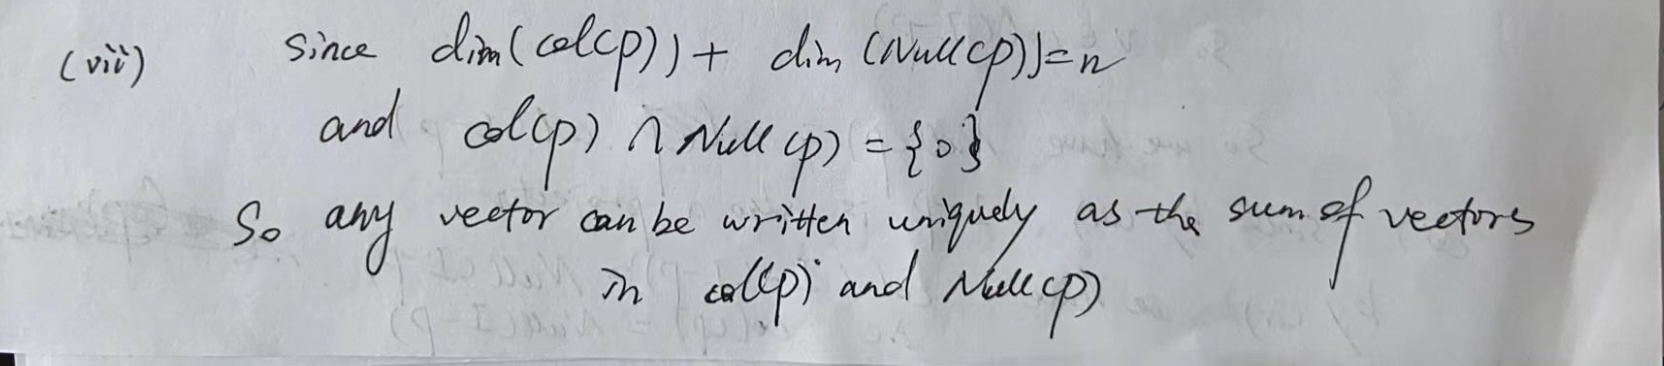 (vii) Since dim(col(p)) + dim(Null(p))=n
and col(p) ∩ Null(p) = {0}
So any vector can be written uniquely as the sum of vectors
in col(p) and Null(p)